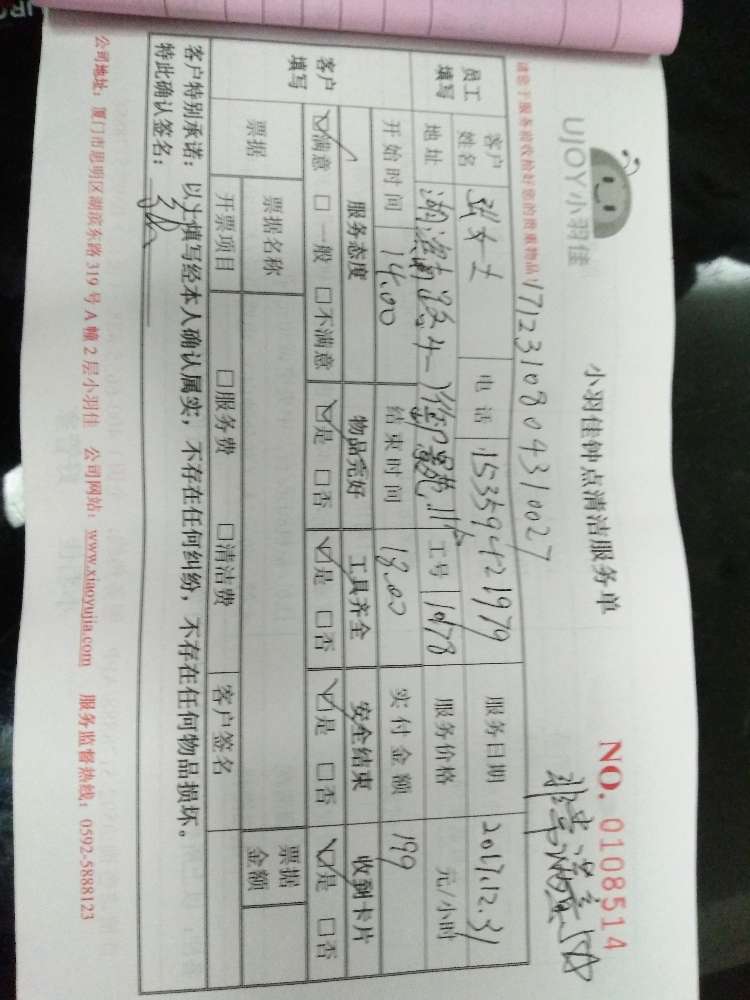 UJOY小羽佳
小羽佳钟点清洁服务单
NO. 0108514
非常满意
请您于服务前收拾好您的贵重物品!
171231080431027
员工填写
客户姓名 女士 电话 服务日期 2017.12.31
地址 工号 服务价格 元/小时
开始时间 14.00 结束时间 18.00 实付金额 199
客户填写
服务态度 物品完好 工具齐全 安全结束 收到卡片
☑满意 □一般 □不满意 ☑是 □否 ☑是 □否 ☑是 □否 ☑是 □否
票据 票据名称 票据金额
开票项目 □服务费 □清洁费 客户签名
客户特别承诺：以上填写经本人确认属实，不存在任何纠纷，不存在任何物品损坏。
特此确认签名：
公司地址：厦门市思明区湖滨东路319号A幢2层小羽佳 公司网站：www.xiaoyujia.com 服务监督热线：0592-5888123